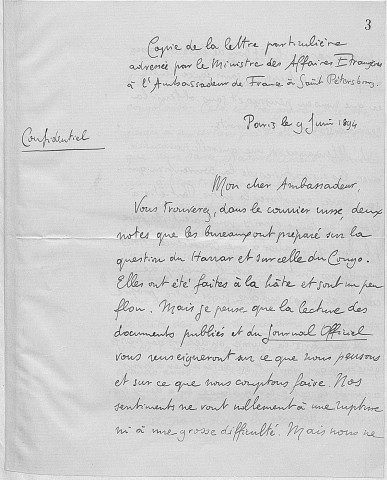 3
Copie de la lettre particulière
adressée par le Ministre des Affaires Etrangères
à l'Ambassadeur de France à Saint Pétersbourg.
Paris le 9 Juin 1894
Confidentiel
Mon cher Ambassadeur,
Vous trouverez, dans le courrier russe, deux
notes que les bureaux ont préparé sur la
question du Harrar et sur celle du Congo.
Elles ont été faites à la hâte et sont un peu
flou. Mais je pense que la lecture des
documents publiés et du Journal Officiel
vous renseigneront sur ce que nous pensons
et sur ce que nous comptons faire. Nos
sentiments ne vont nullement à une rupture
ni à une grosse difficulté. Mais nous ne